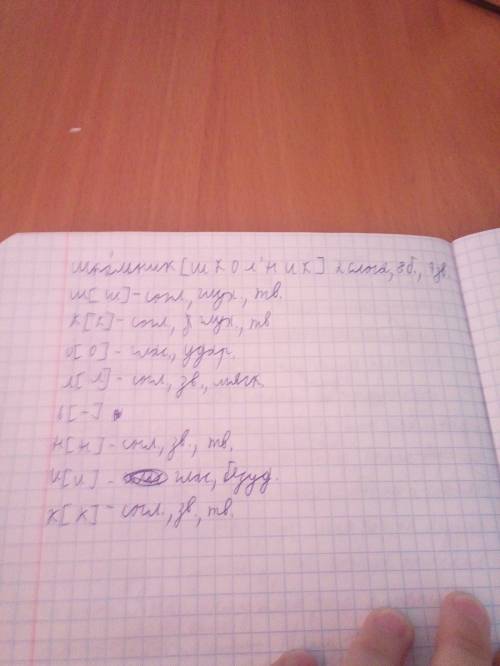 школьник [ш к о л' н и к] 2 слога, 8 б., 7 зв.
ш[ш] - согл, глух., тв.
к[к] - согл, глух., тв
о[о] - глас., удар.
л[л'] - согл, зв., мягк.
ь[-]
н[н] - согл, зв., тв.
и[и] - глас, безуд.
к[к] - согл., зв., тв.